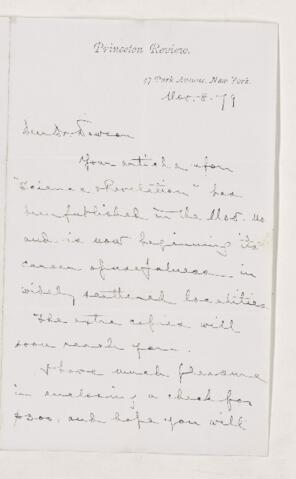 Princeton Review.
37 Park Avenue, New York.
Nov. 8. 79
Dear Dr. Dawson
Your article upon
"Science & Revelation" has
been published in the Nov. No
and is now beginning its
career of usefulness in
widely scattered localities
The extra copies will
soon reach you.
I have much pleasure
in enclosing a check for
$300, and hope you will